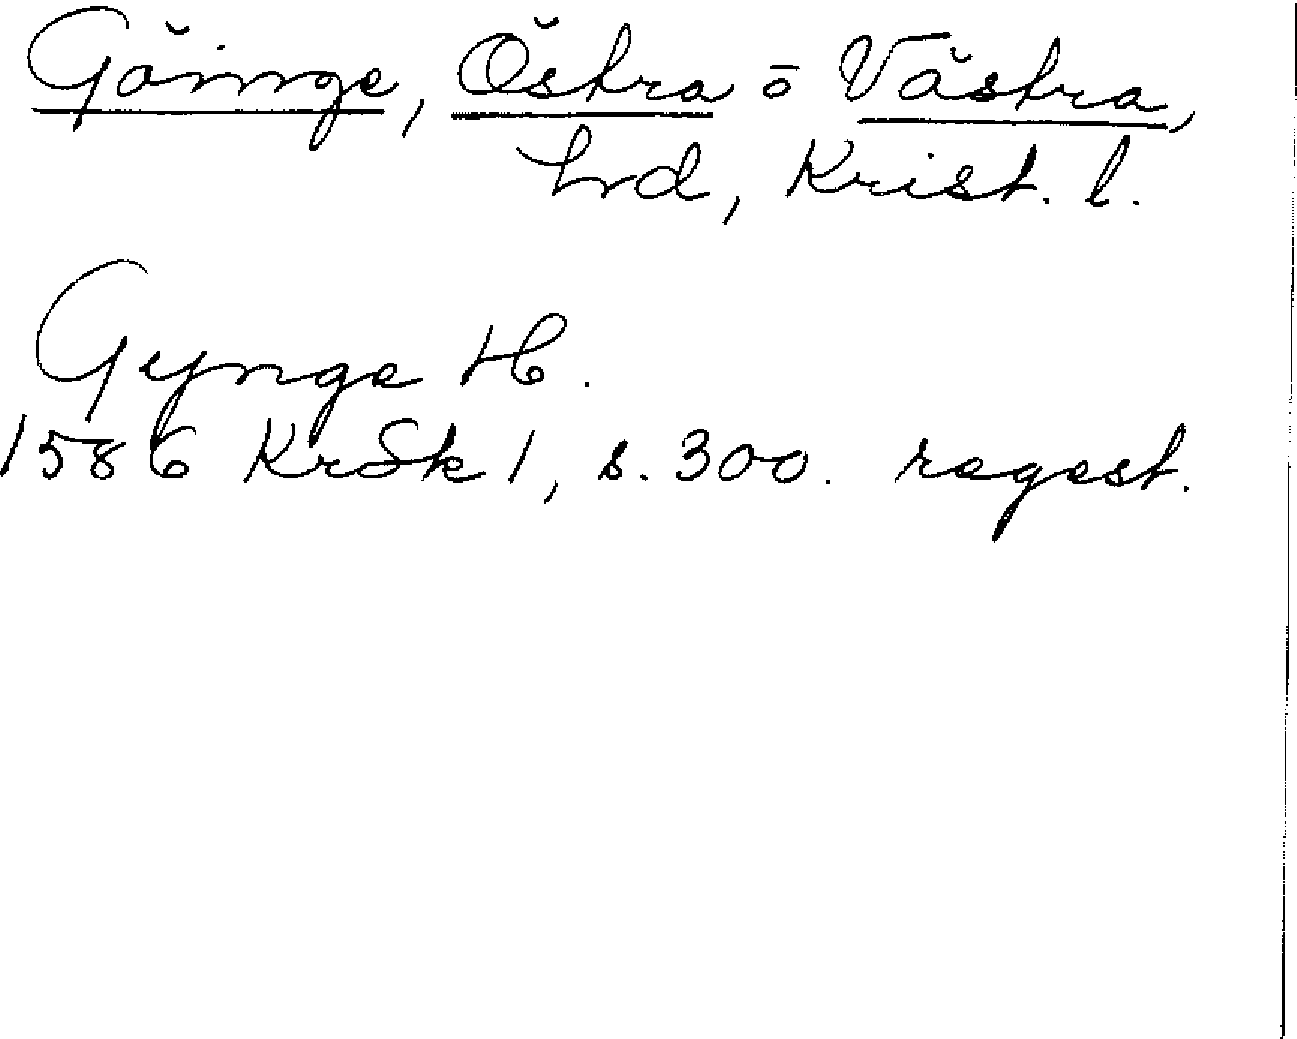 Göinge, Östra o Västra,
hrd, Krist. l.
Gynge H.
1586 KrSk 1, s. 300. regest.